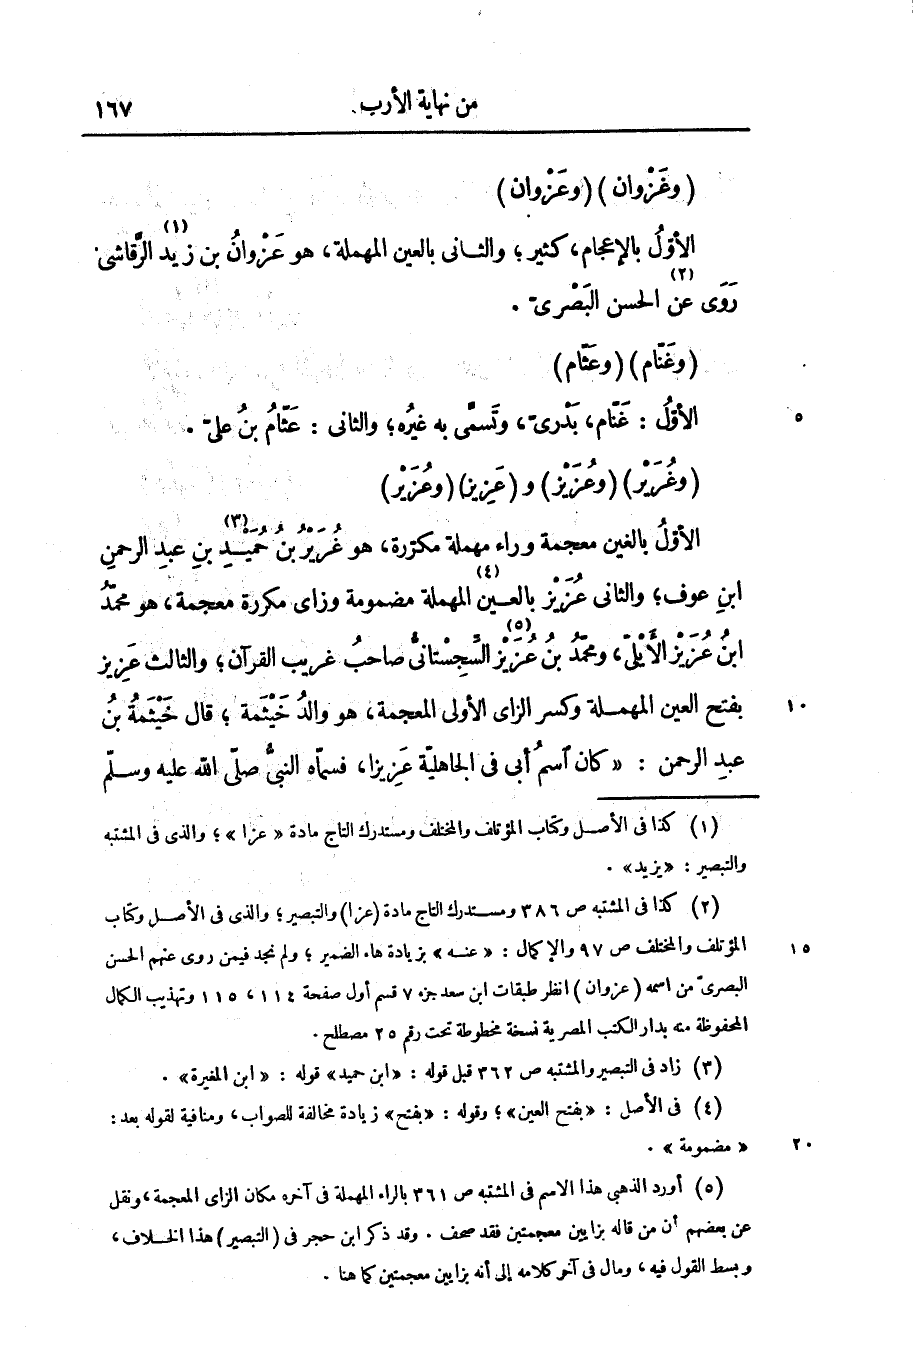 من نهاية الأرب ١٦٧
(وغَزْوان) (وعَزْوان)
الأوّلُ بالإعجام، كثير؛ والثانى بالعين المهملة، هو عَزْوانُ بن زيد(١) الرَّقاشىّ
رَوَى عن(٢) الحسن البَصْرىّ .
(وغَنّام) (وعَثّام)
الأوّلُ : غَنّام، بَدْرىّ، وتَسمَّى به غيرُه؛ والثانى : عَثّامُ بنُ علىّ . ٥
(وغُرَيْر) (وعُزَيْز) و (عَزِيز) (وعُزَيْر)
الأوّلُ بالغين معجمة وراء مهملة مكرّرة، هو غُرَيْرُ بنُ حُمَيْدِ(٣) بنِ عبدِ الرحمنِ
ابنِ عوف؛ والثانى عُزَيْز بالعين(٤) المهملة مضمومة وزاى مكررة معجمة، هو محمّدُ
ابنُ عُزَيْز الأَيْلىّ، ومحمّدُ بنُ عُزَيْز(٥) السَّجِسْتانىُّ صاحبُ غريب القرآن؛ والثالث عَزِيز
بفتح العين المهملة وكسر الزاى الأولى المعجمة، هو والدُ خَيْثَمة؛ قال خَيْثَمةُ بنُ ١٠
عبدِ الرحمن : «كان ٱسمُ أبى فى الجاهليّة عَزِيزا، فسمّاه النبىُّ صلّى الله عليه وسلّم
(١) كذا فى الأصل وكتاب المؤتلف والمختلف ومستدرك التاج مادة «عزا»؛ والذى فى المشتبه
والتبصير : «يزيد» .
(٢) كذا فى المشتبه ص ٣٨٦ ومستدرك التاج مادة (عزا) والتبصير؛ والذى فى الأصل وكتاب
المؤتلف والمختلف ص ٩٧ والإكمال : «عنه» بزيادة هاء الضمير؛ ولم نجد فيمن روى عنهم الحسن ١٥
البصرىّ من اسمه (عزوان) انظر طبقات ابن سعد جزء ٧ قسم أول صفحة ١١٤، ١١٥ وتهذيب الكمال
المحفوظة منه بدار الكتب المصرية نسخة مخطوطة تحت رقم ٢٥ مصطلح .
(٣) زاد فى التبصير والمشتبه ص ٣٦٢ قبل قوله : «ابن حميد» قوله : «ابن المغيرة» .
(٤) فى الأصل : «بفتح العين»؛ وقوله : «بفتح» زيادة مخالفة للصواب، ومنافية لقوله بعد :
«مضمومة» . ٢٠
(٥) أورد الذهبي هذا الاسم فى المشتبه ص ٣٦١ بالراء المهملة فى آخره مكان الزاى المعجمة، ونقل
عن بعضهم أن من قاله بزايين معجمتين فقد صحف . وقد ذكر ابن حجر فى (التبصير) هذا الخلاف،
وبسط القول فيه، ومال فى آخر كلامه إلى أنه بزايين معجمتين كما هنا .